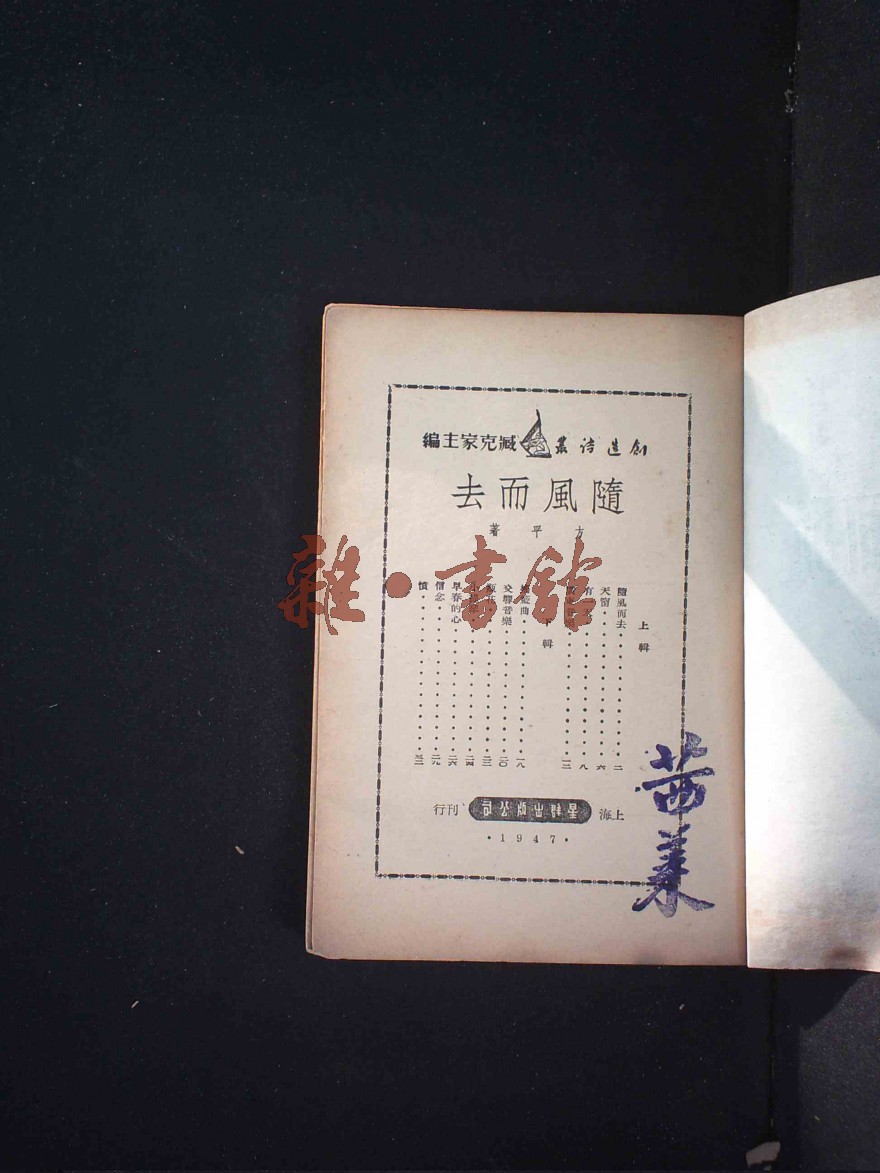 創造詩叢 臧克家主編
隨風而去
方平著
上輯
隨風而去 二
天窗 六
八
一三
輯
一八
交響音樂 二〇
二三
二四
早春的心 二六
信念 二九
憤 三二
上海 星群出版公司 刊行
·1947·
茜菉
雜·書館